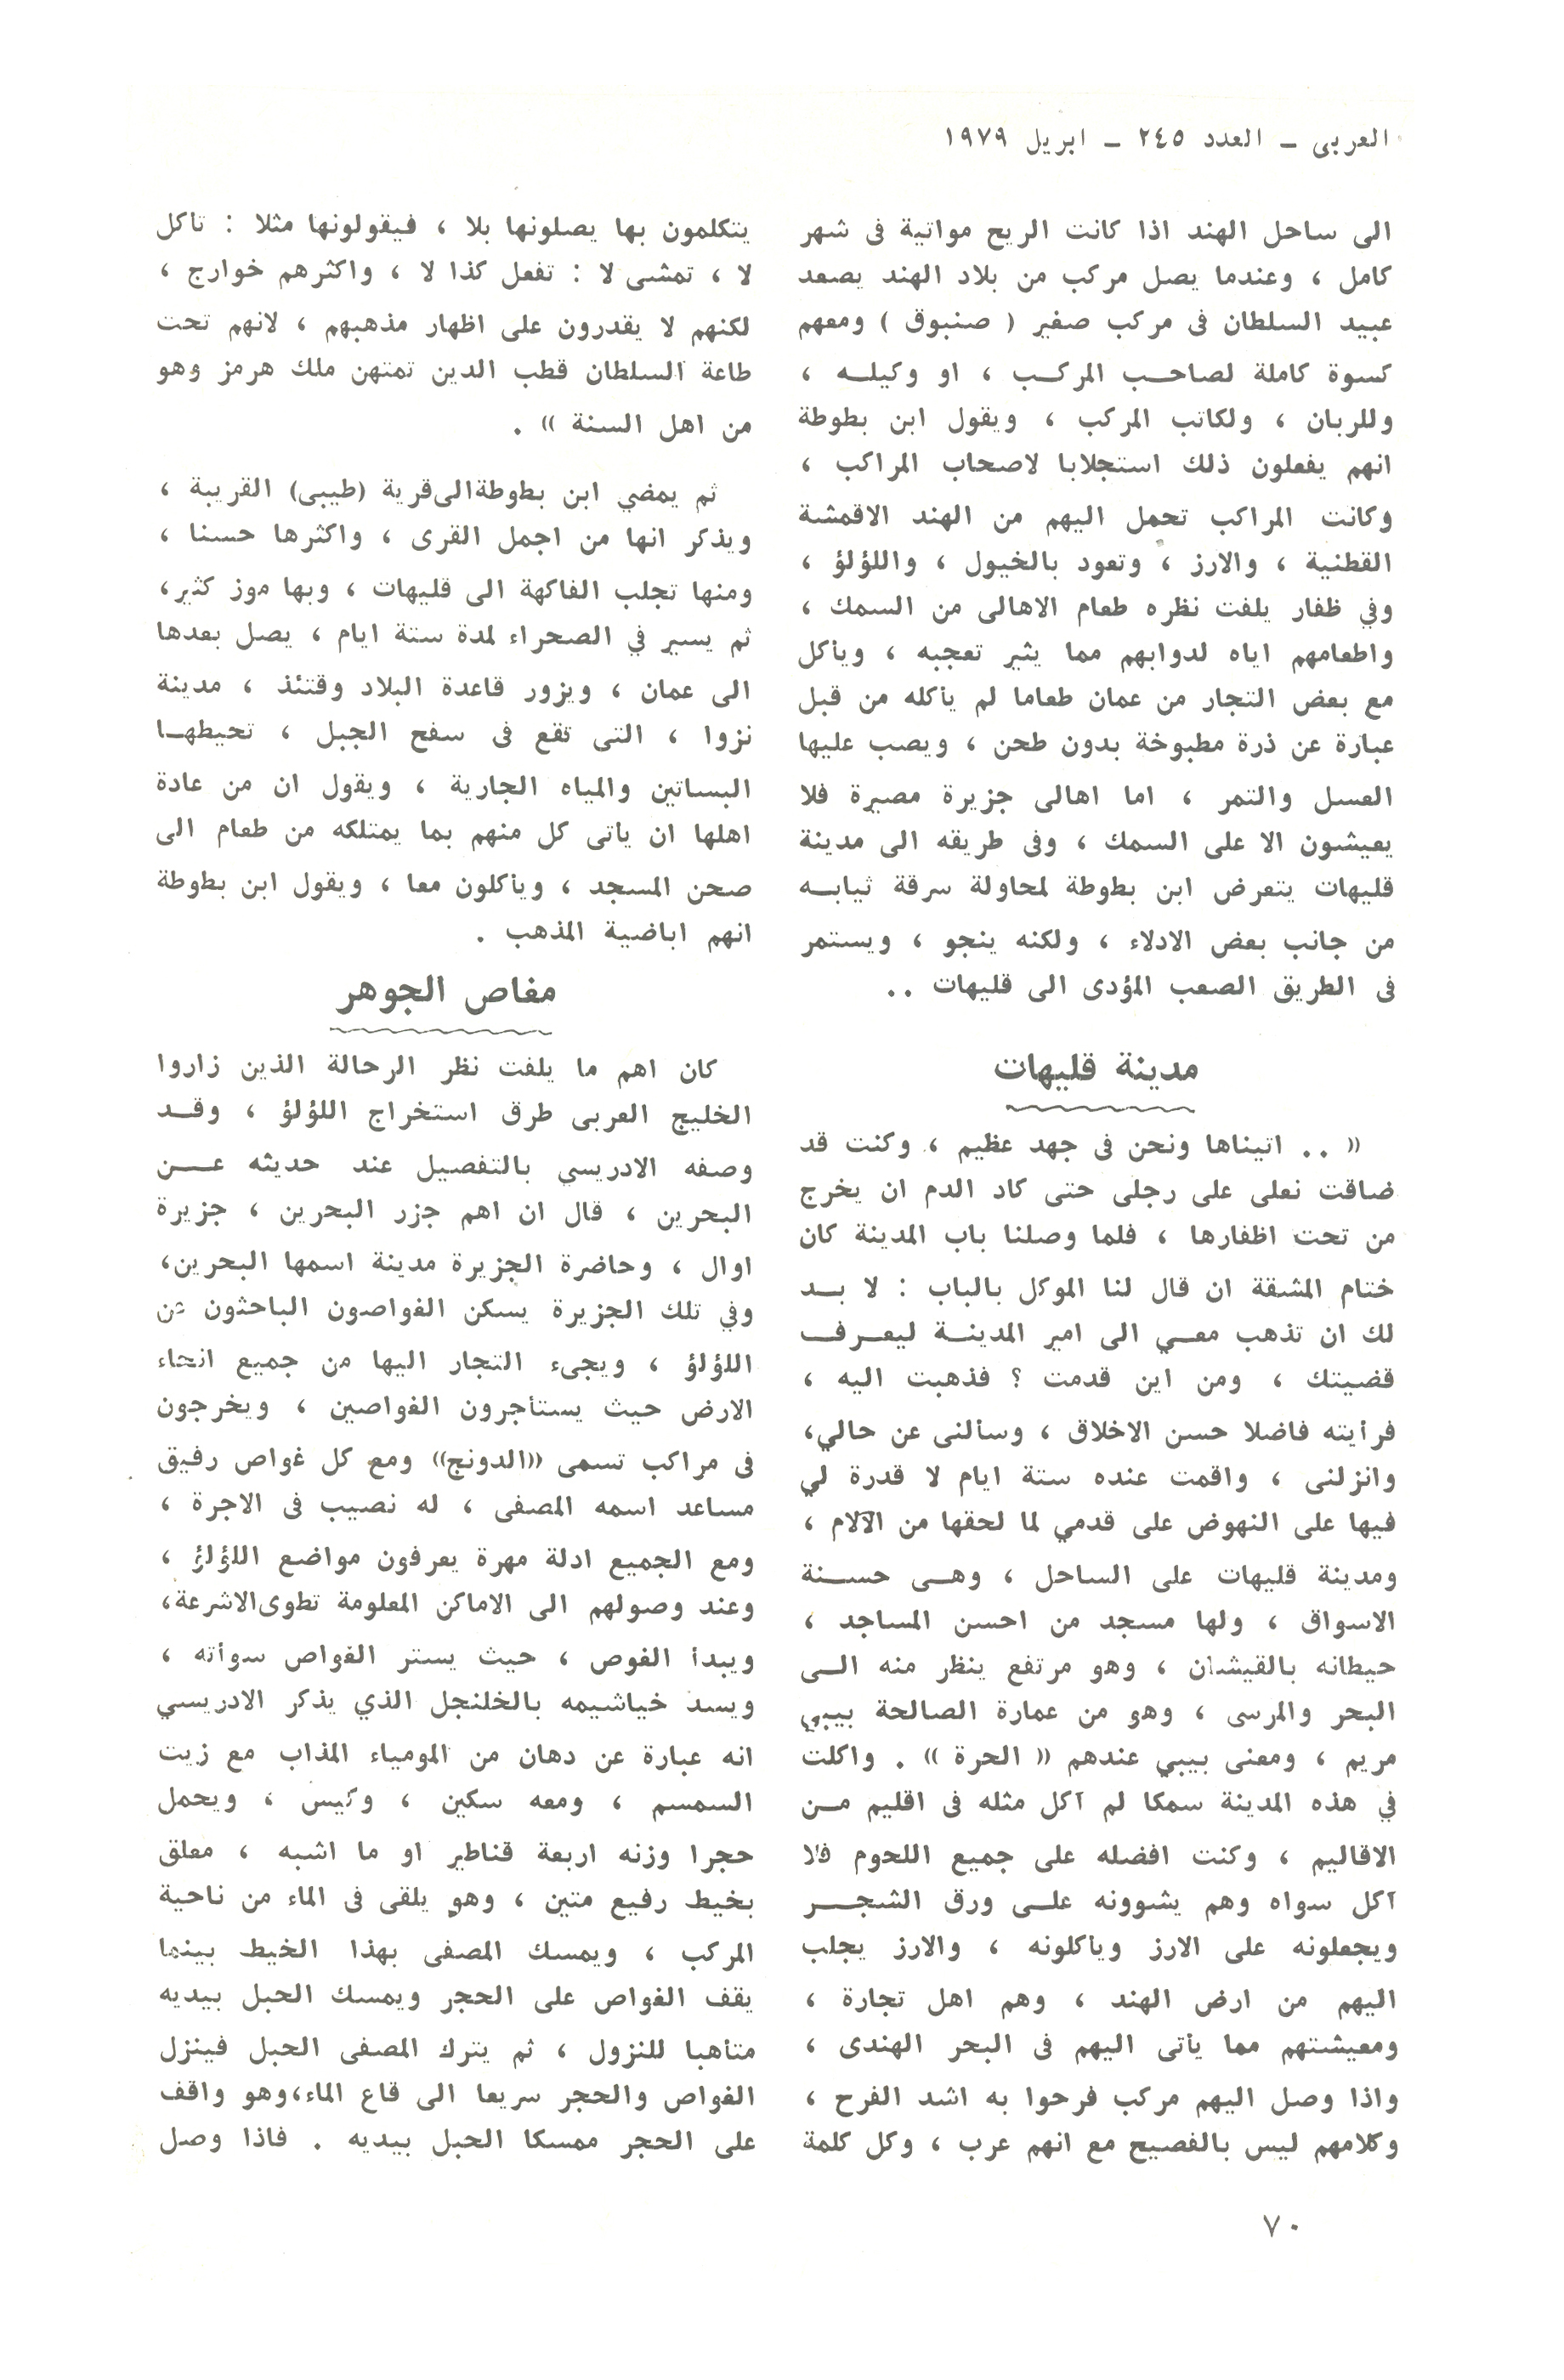 العربى ـ العدد ٢٤٥ ـ ابريل ١٩٧٩
الى ساحل الهند اذا كانت الريح مواتية فى شهر
كامل ، وعندما يصل مركب من بلاد الهند يصعد
عبيد السلطان فى مركب صغير ( صنبوق ) ومعهم
كسوة كاملة لصاحب المركب ، او وكيله ،
وللربان ، ولكاتب المركب ، ويقول ابن بطوطة
انهم يفعلون ذلك استجلابا لاصحاب المراكب ،
وكانت المراكب تحمل اليهم من الهند الاقمشة
القطنية ، والارز ، وتعود بالخيول ، واللؤلؤ ،
وفي ظفار يلفت نظره طعام الاهالى من السمك ،
واطعامهم اياه لدوابهم مما يثير تعجبه ، ويأكل
مع بعض التجار من عمان طعاما لم يأكله من قبل
عبارة عن ذرة مطبوخة بدون طحن ، ويصب عليها
العسل والتمر ، اما اهالى جزيرة مصيرة فلا
يعيشون الا على السمك ، وفى طريقه الى مدينة
قليهات يتعرض ابن بطوطة لمحاولة سرقة ثيابه
من جانب بعض الادلاء ، ولكنه ينجو ، ويستمر
فى الطريق الصعب المؤدى الى قليهات ..
مدينة قليهات
« .. اتيناها ونحن فى جهد عظيم ، وكنت قد
ضاقت نعلى على رجلى حتى كاد الدم ان يخرج
من تحت اظفارها ، فلما وصلنا باب المدينة كان
ختام المشقة ان قال لنا الموكل بالباب : لا بد
لك ان تذهب معي الى امير المدينة ليعرف
قضيتك ، ومن اين قدمت ؟ فذهبت اليه ،
فرأيته فاضلا حسن الاخلاق ، وسألنى عن حالي،
وانزلنى ، واقمت عنده ستة ايام لا قدرة لي
فيها على النهوض على قدمي لما لحقها من الآلام ،
ومدينة قليهات على الساحل ، وهى حسنة
الاسواق ، ولها مسجد من احسن المساجد ،
حيطانه بالقيشان ، وهو مرتفع ينظر منه الى
البحر والمرسى ، وهو من عمارة الصالحة بيبي
مريم ، ومعنى بيبي عندهم « الحرة » . واكلت
في هذه المدينة سمكا لم آكل مثله فى اقليم من
الاقاليم ، وكنت افضله على جميع اللحوم فلا
آكل سواه وهم يشوونه على ورق الشجر
ويجعلونه على الارز ويأكلونه ، والارز يجلب
اليهم من ارض الهند ، وهم اهل تجارة ،
ومعيشتهم مما يأتى اليهم فى البحر الهندى ،
واذا وصل اليهم مركب فرحوا به اشد الفرح ،
وكلامهم ليس بالفصيح مع انهم عرب ، وكل كلمة
يتكلمون بها يصلونها بلا ، فيقولونها مثلا : تاكل
لا ، تمشى لا : تفعل كذا لا ، واكثرهم خوارج ،
لكنهم لا يقدرون على اظهار مذهبهم ، لانهم تحت
طاعة السلطان قطب الدين تمتهن ملك هرمز وهو
من اهل السنة » .
ثم يمضي ابن بطوطة الى قرية (طيبى) القريبة ،
ويذكر انها من اجمل القرى ، واكثرها حسنا ،
ومنها تجلب الفاكهة الى قليهات ، وبها موز كثير،
ثم يسير في الصحراء لمدة ستة ايام ، يصل بعدها
الى عمان ، ويزور قاعدة البلاد وقتئذ ، مدينة
نزوا ، التى تقع فى سفح الجبل ، تحيطها
البساتين والمياه الجارية ، ويقول ان من عادة
اهلها ان ياتى كل منهم بما يمتلكه من طعام الى
صحن المسجد ، ويأكلون معا ، ويقول ابن بطوطة
انهم اباضية المذهب .
مغاص الجوهر
كان اهم ما يلفت نظر الرحالة الذين زاروا
الخليج العربى طرق استخراج اللؤلؤ ، وقد
وصفه الادريسي بالتفصيل عند حديثه عن
البحرين ، قال ان اهم جزر البحرين ، جزيرة
اوال ، وحاضرة الجزيرة مدينة اسمها البحرين،
وفي تلك الجزيرة يسكن الغواصون الباحثون عن
اللؤلؤ ، ويجىء التجار اليها من جميع انحاء
الارض حيث يستأجرون الغواصين ، ويخرجون
فى مراكب تسمى «الدونج» ومع كل غواص رفيق
مساعد اسمه المصفى ، له نصيب فى الاجرة ،
ومع الجميع ادلة مهرة يعرفون مواضع اللؤلؤ ،
وعند وصولهم الى الاماكن المعلومة تطوى الاشرعة،
ويبدأ الغوص ، حيث يستر الغواص سوأته ،
ويسد خياشيمه بالخلنجل الذي يذكر الادريسي
انه عبارة عن دهان من المومياء المذاب مع زيت
السمسم ، ومعه سكين ، وكيس ، ويحمل
حجرا وزنه اربعة قناطير او ما اشبه ، معلق
بخيط رفيع متين ، وهو يلقى فى الماء من ناحية
المركب ، ويمسك المصفى بهذا الخيط بينما
يقف الغواص على الحجر ويمسك الحبل بيديه
متأهبا للنزول ، ثم يترك المصفى الحبل فينزل
الغواص والحجر سريعا الى قاع الماء،وهو واقف
على الحجر ممسكا الحبل بيديه . فاذا وصل
٧٠